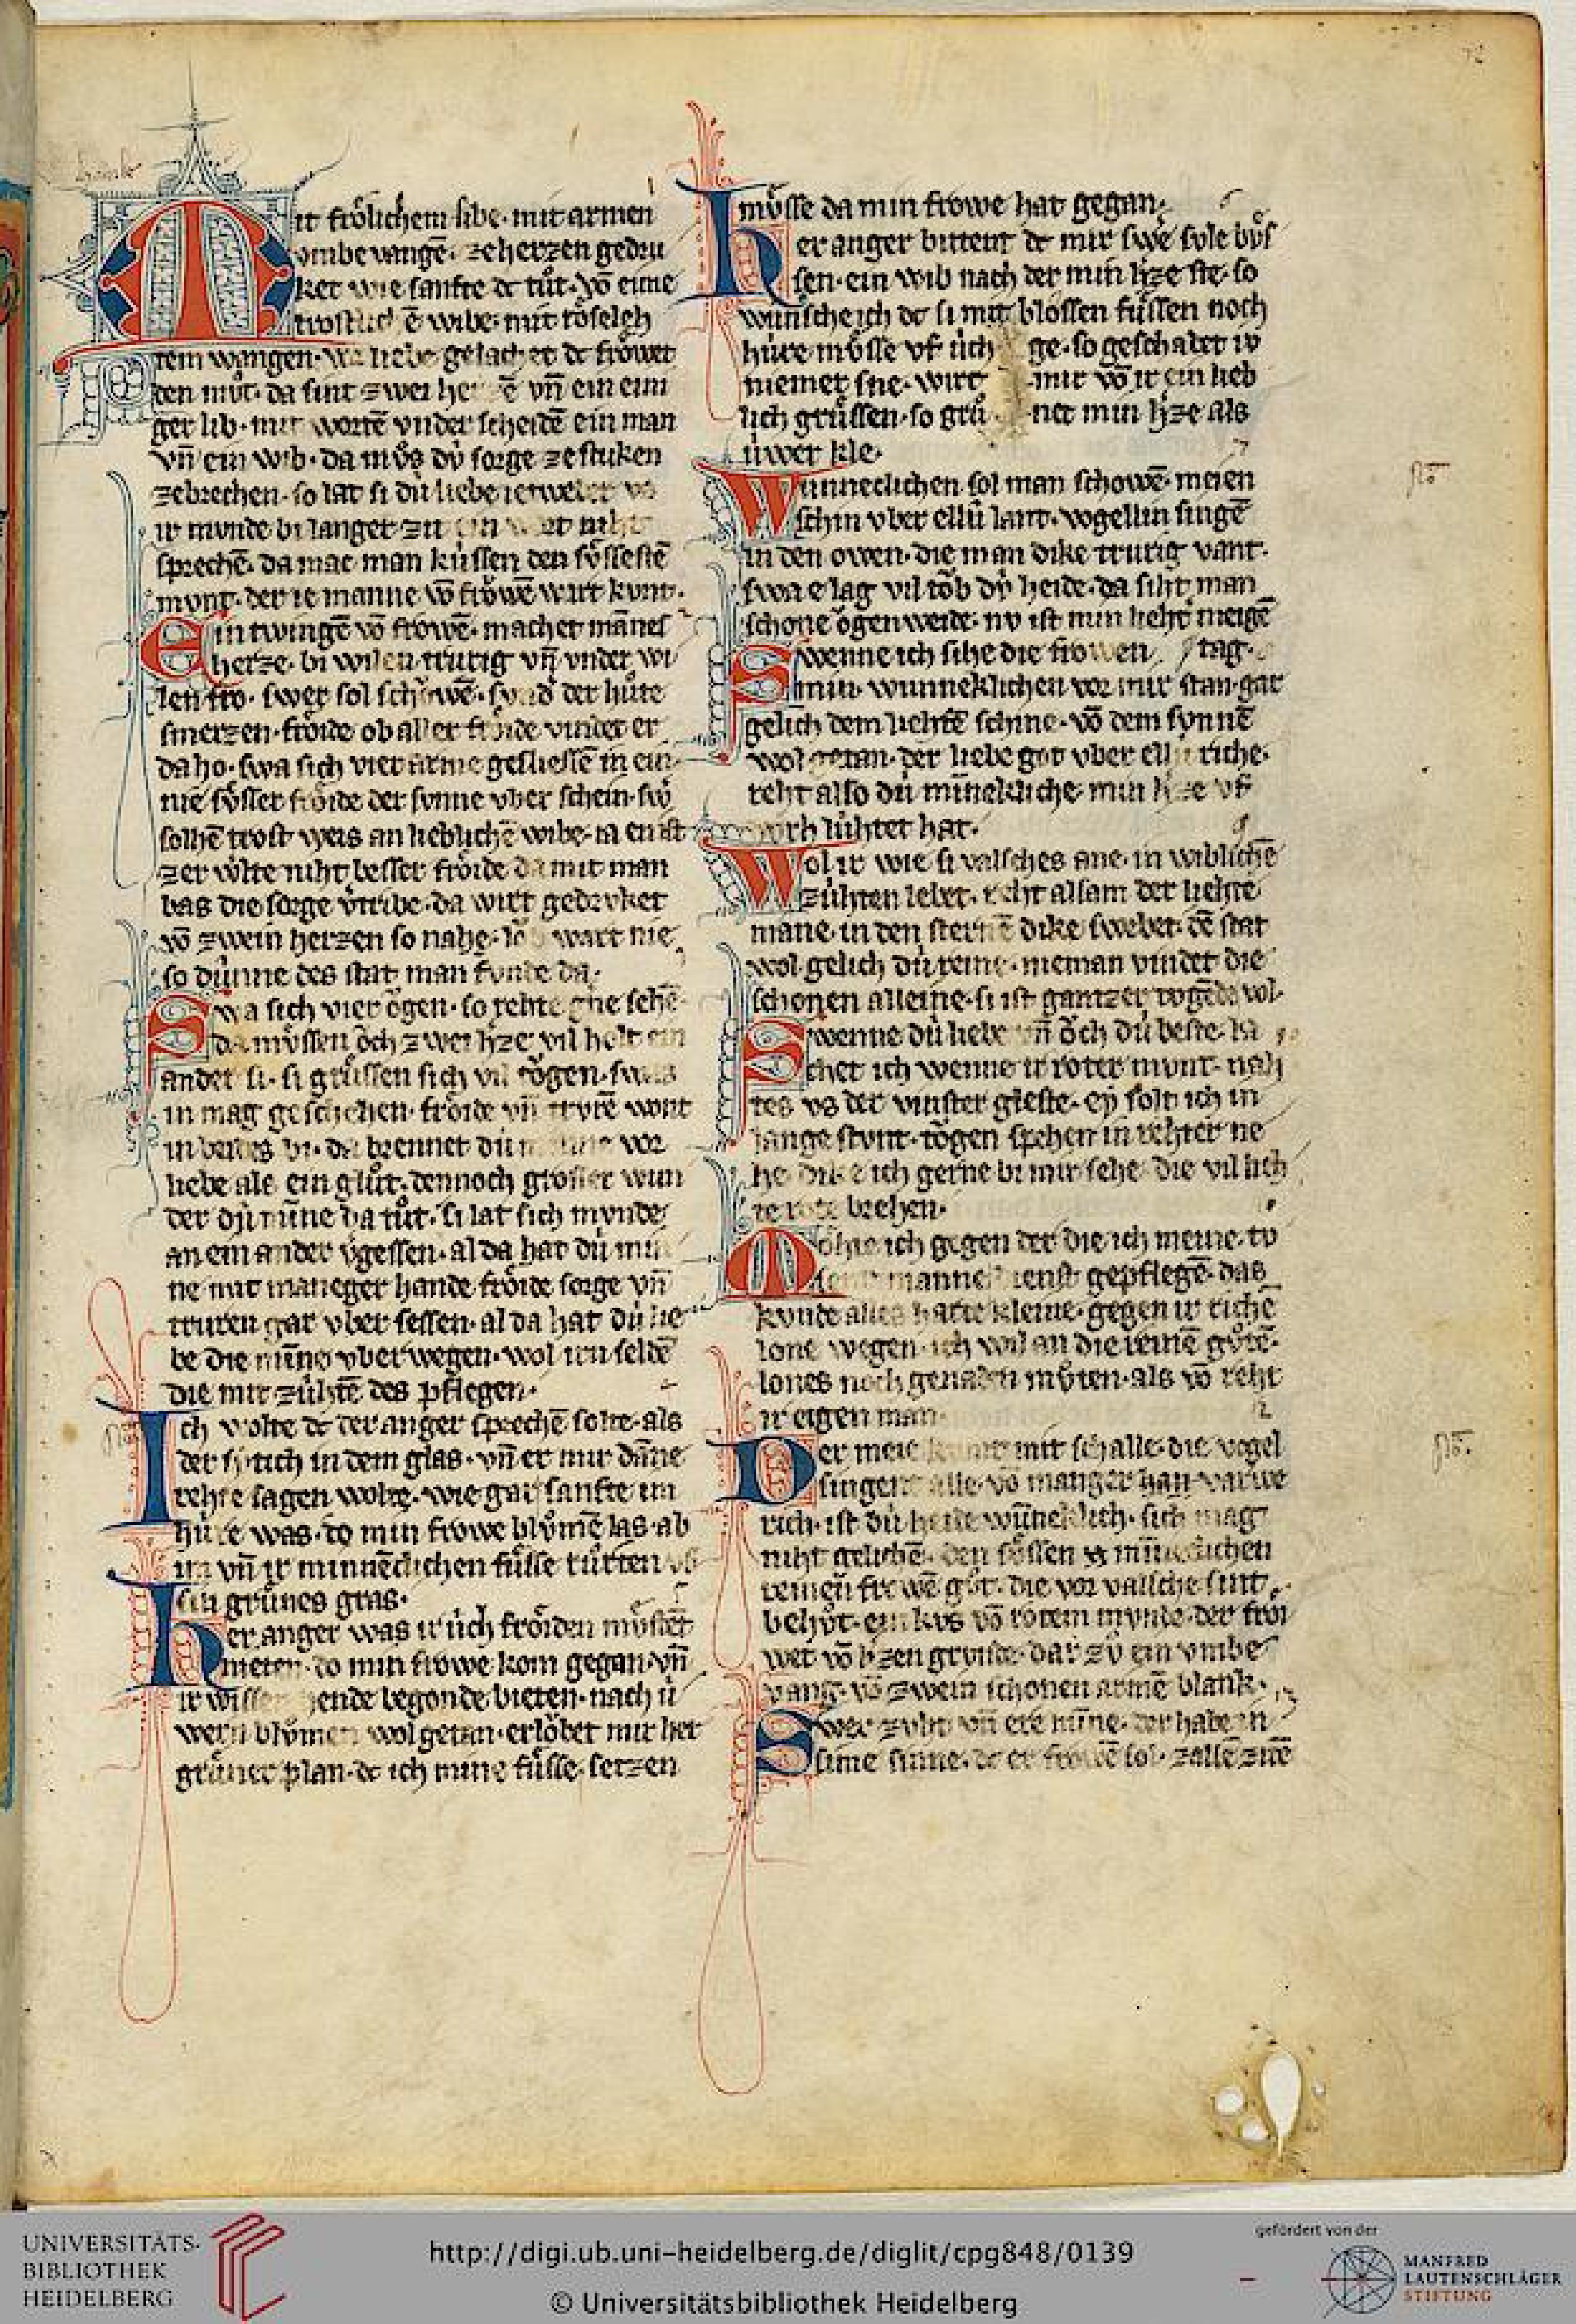 72
Mit frölichem libe· mit armen
vmbe vangē· ze herzen gedru
ket wie sanfte dc tůt· võ eime
trostlichē wibe· mit röselehtem
wangen· vor liebe gelachet dc fröwet
den můt· da sint zwei herzē vn̄ ein eini
ger lib· mit wortē vnderscheidē ein man
vn̄ ein wib· da můs dv̍ sorge ze stuken
zebrechen· so lat si dú liebe
ir munde bi langer zit ein wort niht
sprechē· da mac man kússen den sůssestē
mvnt· der ie manne võ fröwē wart kvnt·
Ein twingē võ frowē· machet mānes
herze· bi wilen trurig vn̄ vnder wi
len fro· swer sol schowē· svnd der hůte
smerzen· fröide ob aller fröide vindet er
da ho· swa sich vier arme gesliessē in ein·
nie sůsser fröide der svnne vber schein· swˢ
solhē trost weis an lieblichē wibe· in en ist
zer wˢlte niht besser fröide da mit man
bas die sorge vˢtribe· da wirt gedrvket
võ zwein herzen so nahe· wart nie
so dúnne des stat man fvnde da·
Swa sich vier ögen· so rehte gˢne sehē
da můssen öch zwei hˢze vil holt ein
ander si· si grůssen sich vil tögen· swas
in mag geschehen· fröide vn̄ trvrē wont
in beides bi· da brennet dú minne vor
liebe als ein glůt· dennoch grosser wun
der dú minne da tůt· si lat sich mvnde
an ein ander vˢgessen· al da hat dú min
ne mit maneger hande fröide sorge vn̄
truren gar vber sessen· al da hat dú lie
be die minne vberwegen· wol im seldē
die mit zúhtē des pflegen·
Ich wolte dc der anger sprechē solte· als
der sitich in dem glas· vn̄ er mir dāne
rehte sagen wolte· wie gar sanfte im
húre was· do min frowe blůmē las· ab
im vn̄ ir minneclichen fůsse růrten vf
sin grůnes gras·
Her anger was ir úch fröiden můstet
nieten· do min frowe kom gegan· vn̄
ir wissen hende begonde bieten· nach ú
wern blůmen wol getan· erlöbet mir her
grůner plan· dc ich mine fůsse setzen
můsse da min frowe hat gegan·
Her anger bittent dc mir swˢe sule bůs
sen· ein wib nach der min hˢze ste· so
wúnsche ich dc si mit blossen fůssen noch
húre můsse vf úch ge· so geschadet iv
niemer sne· wirt mir võ ir ein lieb
lich grůssen· so grů net min hˢze als
úwer kle·
Wunneclichen sol man schowē· meien
schin vber ellú lant· vogellin singē
in den owen· die man dike trurig vant·
swa e lag vil töb dv̍ heide· da siht man
schone ögen weide· nv ist min lieht meigē
tag·
Swenne ich sihe die frowen
min· wunneklichen vor mir stan· gar
gelich dem liehtē schine· võ dem svnnē
wol getan· der liebe got vber ellu riche·
reht also dú mineklliche min hˢze vf
dvrh lúhtet hat·
Wol ir wie si valsches ane· in wiblichē
zúhten lebet· reht alsam der liehte
mane· in den sternē dike swebet· dē stat
wol gelich dú reine· nieman vindet die
schonen alleine· si ist gantzer tvgēde vol·
Swenne dú liebe vn̄ öch dú beste· la
chet ich wenne ir roter mvnt· nah
tes vs der vinster gleste· ey solt ich in
lange stvnt· tögen spehen in rehter ne
he· dike ich gerne bi mir sehe· die vil lieh
te rote brehen·
Möhte ich gegen der die ich meine· tv
sent mannes dienst gepflegē· das
kvnde alles harte kleine· gegen ir richē
lone wegen· ich wil an die reinē gůtē·
lones noch genaden můten· als võ reht
ir eigen man·
Der meie kvmt mit schalle· die vogel
singent alle· võ manger han· varwe
rich· ist dú heide wu̅neklich· sich mag
niht gelichē· den sůssen minneclichen
reinen frowē gůt· die vor valsche sint
behůt· ein kvs võ rotem mvnde· der fröi
wet võ hˢzen grvnde· dar zů ein vmbe
vang· võ zwein schonen armē blank·
Swer zvht vn̄ ere minne· der habe in
sime sinne· dc er frowē sol· zallē zitē
UNIVERSITÄTS-
BIBLIOTHEK
HEIDELBERG
http://digi.ub.uni-heidelberg.de/diglit/cpg848/0139
© Universitätsbibliothek Heidelberg
gefördert von der
MANFRED
LAUTENSCHLÄGER
STIFTUNG